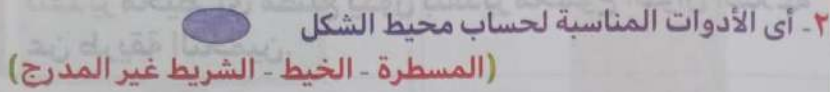 ٢- أى الأدوات المناسبة لحساب محيط الشكل
(المسطرة - الخيط - الشريط غير المدرج)